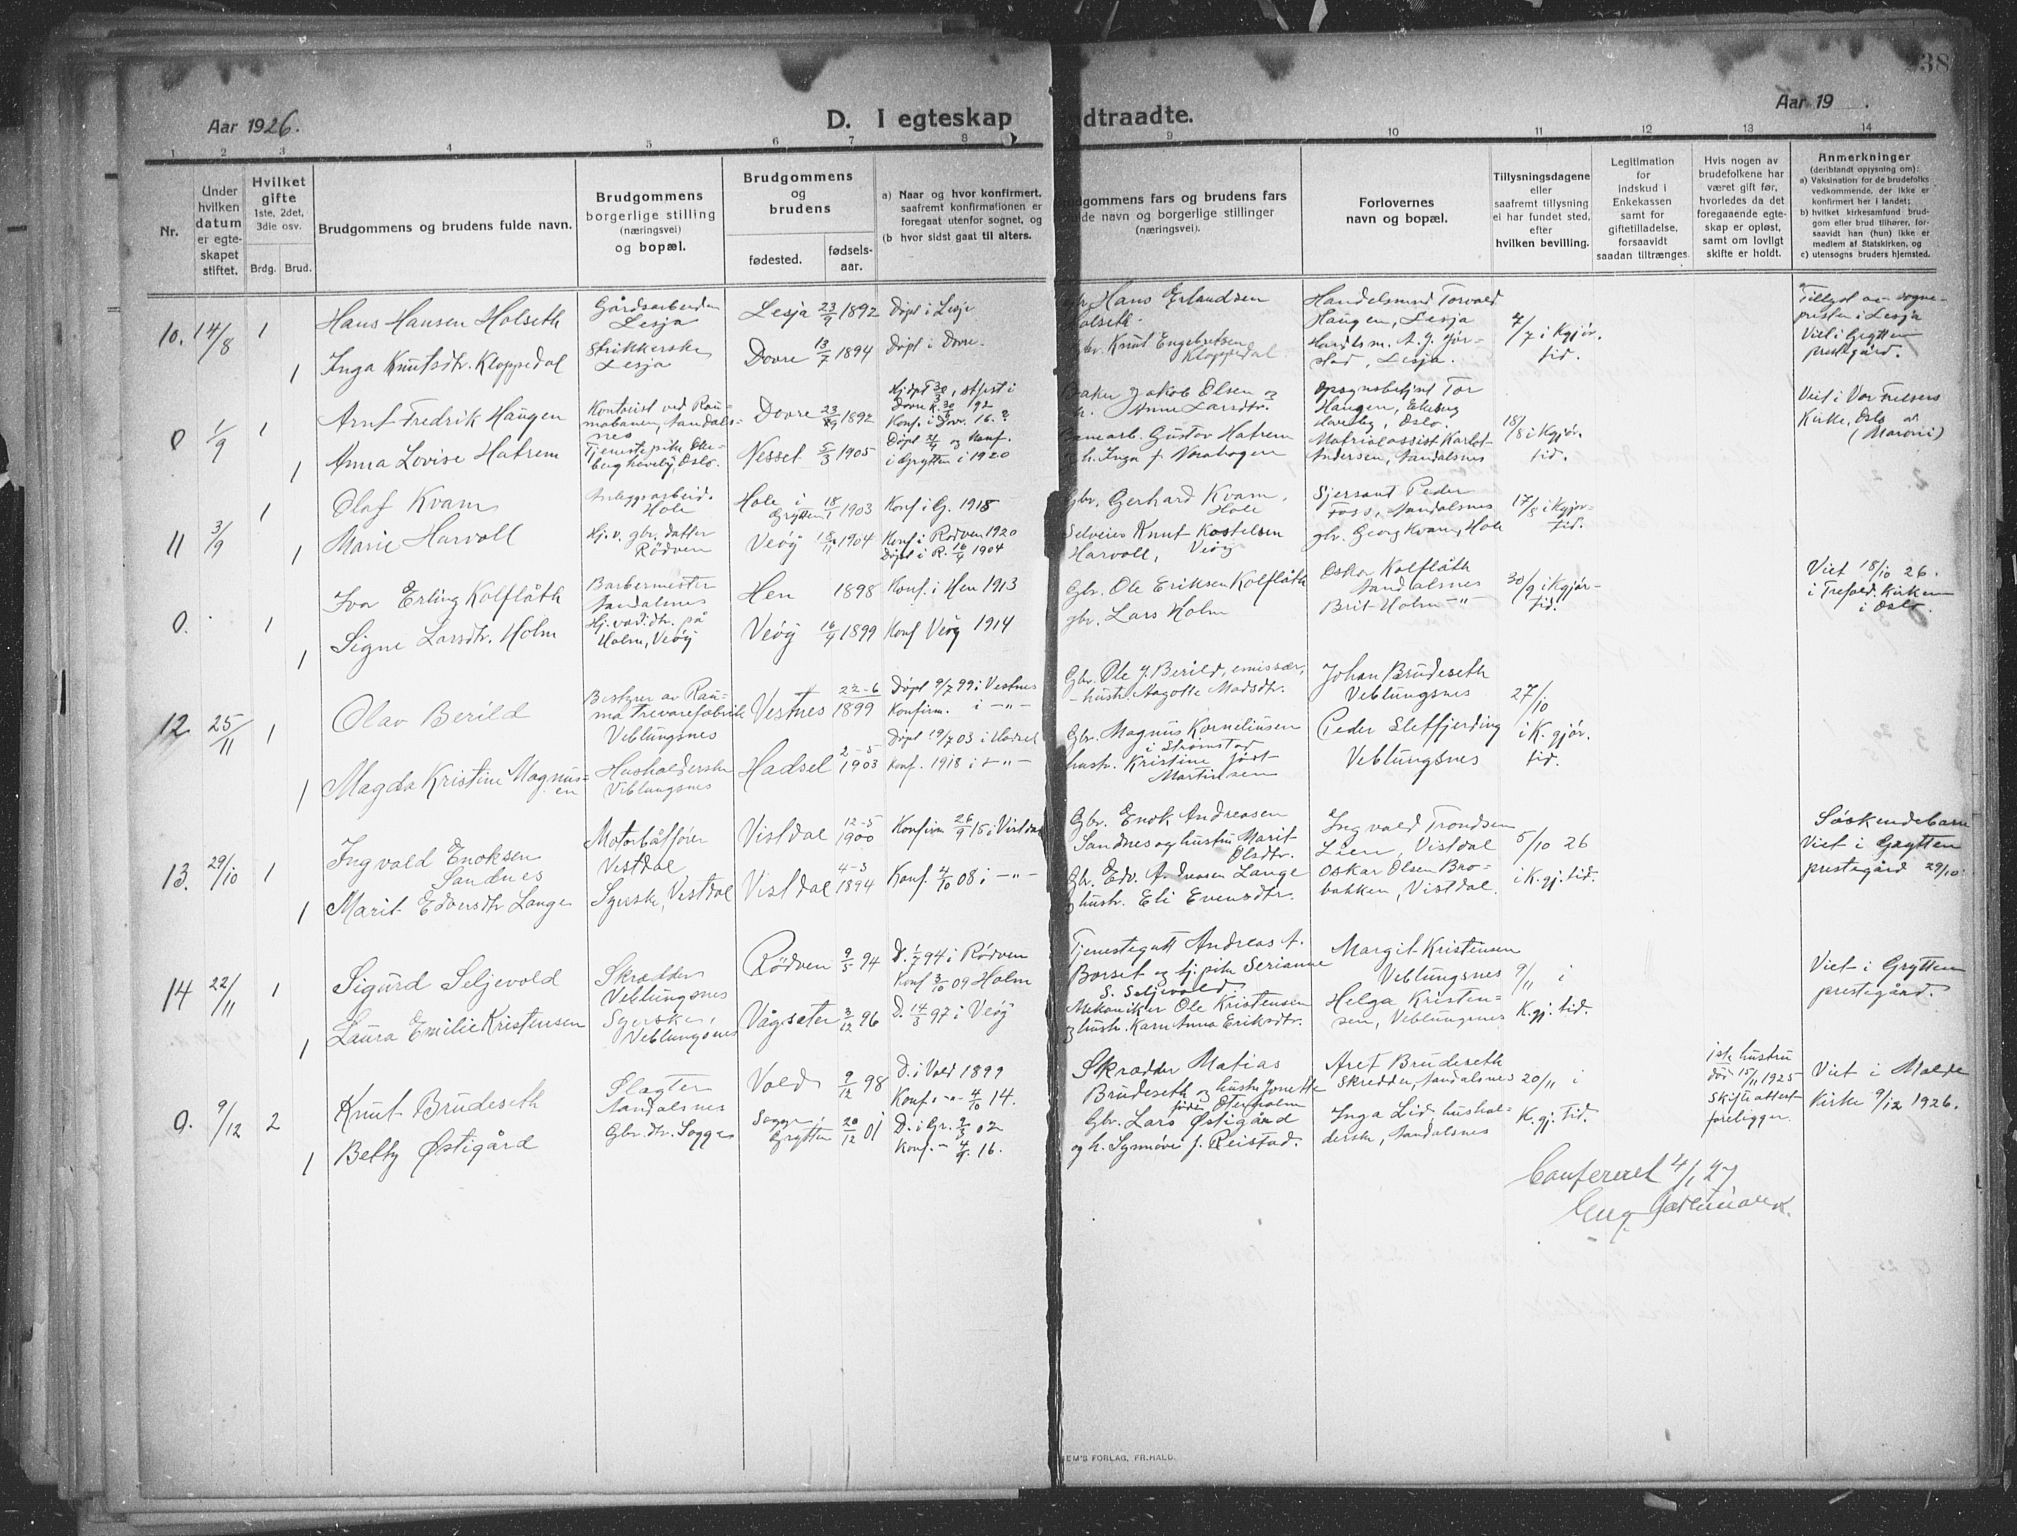 38
Aar 1926.
D. I egteskap
dtraadte.
Aar 19 .
1 2 3 4 5 6 7 8 9 10 11 12 13 14
Nr.
Under
hvilken
datum
er egte-
skapet
stiftet.
Hvilket
gifte
1ste, 2det,
3die osv.
Brdg. Brud.
Brudgommens og brudens fulde navn.
Brudgommens
borgerlige stilling
(næringsvei)
og bopæl.
Brudgommens
og
brudens
fødested.
fødsels-
aar.
a) Naar og hvor konfirmert,
saafremt konfirmationen er
foregaat utenfor sognet, og
(b hvor sidst gaat til alters.
udgommens fars og brudens fars
fulde navn og borgerlige stillinger
(næringsvei).
Forlovernes
navn og bopæl.
Tillysningsdagene
eller
saafremt tillysning
ei har fundet sted,
efter
hvilken bevilling.
Legitimation
for
indskud i
Enkekassen
samt for
giftetilladelse,
forsaavidt
saadan tiltrænges.
Hvis nogen av
brudefolkene har
været gift før,
hvorledes da det
foregaaende egte-
skap er opløst,
samt om lovligt
skifte er holdt.
Anmerkninger
(deriblandt opysning om):
a) Vaksination for de brudefolks
vedkommende, der ikke er
konfirmert her i landet;
b) hvilket kirkesamfund brud-
gom eller brud tilhører, for-
saavidt han (hun) ikke er
medlem af Statskirken, og
c) utensogns bruders hjemsted.
10. 14/8 1
Hans Hansen Holseth
Gårdsarbeider
Lesja
Lesja 23/9 1892
Døpt i Lesje
Hans Erlandsen
Holseth.
Handelsmnd Torvald
Haugen, Lesja
4/7 i Kgjør.
tid.
Tillyst av sogne-
presten i Lesja
Viet i Grytten
prestegård.
1
Inga Knutsdtr. Kloppedal
Strikkerske
Lesja
Dovre 13/7 1894
Døpt i Dovre.
Gbr. Knut Engebretsen
Kloppedal
Handelsm. A. J. Jør-
stad, Lesja.
0 1/9 1
Arnt Fredrik Haugen
Kontorist ved Rau-
mabanen, Aandals-
nes
Dovre 23/9 1892
Baker Jakob Olsen og
h. Anne Larsdtr.
Opsynsbetjent Tor
Haugen, Ekeberg
haveby, Oslo.
18/8 i Kgjør.
tid.
Viet i Vor Frelsers
Kirke, Oslo av
(Maroni)
1
Anna Lovise Hatrem
Tjenestepike Eke-
berg haveby Oslo.
Nesset 5/3 1905
Døpt 21/4 og Konf.
i Grytten i 1920
Banearb. Gustov Hatrem
og h. Inga f. Norabogen
Matrialassist Karlot
Andersen, Aandalsnes
11 3/9 1
Olaf Kvam
Anleggsarbeid.
Hole
Hole i
Grytten 18/1 1903
Konf i G. 1918
Gbr. Gerhard Kvam,
Hole
Sjersant Peder
Foss, Aandalsnes
17/8 i Kgjør-
tid.
1
Marie Harvoll
Hj.v. gbr. datter
Rødven
Veøy 18/11 1904
Konf i Rødven 1920
Døpt i R. 16/4 1904
Selveier Knut Kostelsen
Harvoll, Veøy
gbr. Georg Kvam, Hole
0. 1
Ivar Erling Kolflåth
Barbermester
Aandalsnes
Hen 1898
Konf. i Hen 1913
Gbr. Ole Eriksen Kolflåth
Oskar Kolflåth
Aandalsnes
30/9 i Kgjør-
tid.
Viet 18/10 26.
i Trefold. Kirken
i Oslo.
1
Signe Larsdtr. Holm
Hj.vær.dtr. på
Holm, Veøy
Veøy 16/9 1899
Konf Veøy 1914
gbr. Lars Holm
Brit Holm -"-
12 25/11 1
Olav Berild
Bestyrer av Rau-
ma Trevarefabrik
Veblungsnes
Vestnes 22-6 1899
Døpt 9/7 99 i Vestnes
Konfirm. i -"-
Gbr. Ole J. Berild, emissær,
hustr. Aagotte Madsdtr.
Johan Brudeseth
Veblungsnes
27/10
i K. gjør.
tid.
1
Magda Kristine Magnus-
en
Husholderske
Veblungsnes
Hadsel 2-5 1903
Døpt 19/7 03 i Hadsel
Konf. 1918 i -"-
Gbr. Magnus Korneliusen
i Strømstad
hustr. Kristine født
Martinsen
Peder Sletfjerding
Veblungsnes
13. 29/10 1
Ingvald Enoksen
Sandnes
Motorbåtfører
Vestdal
Vistdal 12-5 1900
Konfirm 26/9 15 i Vistdal
Gbr. Enok Andreasen
Sandnes og hustru Marit
Olsdtr.
Ingvald Trondsen
Lien, Vistdal
5/10 26
i K. gj. tid.
Søskendebarn
Viet i Grytten
prestegård 29/10.
1
Marit Edvardsdtr Lange
Syerske, Vestdal
Vistdal 4-3 1894
Konf. 4/10 08 i -"-
Gbr. Edv. Andreasen Lange
og hustr. Eli Evensdtr.
Oskar Olsen Bro-
bakken, Vistdal.
14 22/11 1
Sigurd Seljevold
Skrædder
Veblungsnes
Rødven 9/5 94
D. 1/7 94 i Rødven
Konf 3/10 09 Holm
Tjenestegutt Andreas A.
Borset og tj. pike Serianne
S. Seljevold.
Margit Kristensen
Veblungsnes
9/11 i
K. gj. tid.
Viet i Grytten
prestegård.
1
Laura Emilie Kristensen
Syerske,
Veblungsnes
Vågseter 3/12 96
D. 14/3 97 i Veøy
Mekaniker Ole Kristensen
og hustr. Karn Anna Eriksdtr.
Helga Kristen-
sen, Veblungsnes
0. 9/12 2
Knut Brudeseth
Slagter
Aandalsnes
Vold 9/12 98
D. i Vold 1899
Konf. -"- 4/10 14.
Skrædder Matias
Brudeseth og hustru Jonette
født Oterholm
Aret Brudeseth
Skredder, Aandalsnes
20/11 i
K. gj. tid.
1ste hustru
død 15/11 1925
Skifteattest
foreligger.
Viet i Molde
Kirke 9/12 1926.
1
Betty Østigård
Gbr. dtr. Sogge
Sogge i
Grytten 20/12 01
D. i Gr. 2/3 02
Konf. - 4/9 16.
Gbr. Lars Østigård
og h. Synnøve f. Reistad.
Inga Lid, hushol-
derske, Aandalsnes
Confereret 4/1 27
EM'S FORLAG, FR.HALD.